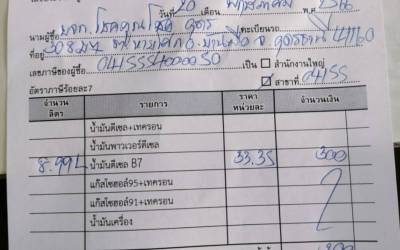 วันที่ 20 เดือน พฤษภาคม พ.ศ. 2566
นามผู้ซื้อ บจก. โชคคูณโชค อุดร /ทะเบียนรถ
ที่อยู่ 308 จ. อุดรธานี 41160
เลขภาษีของผู้ซื้อ เป็น สำนักงานใหญ่
สาขาที่ 04155
อัตราภาษีร้อยละ7
จำนวน ลิตร รายการ ราคา หน่วยละ จำนวนเงิน
น้ำมันดีเซล+เทครอน
น้ำมันพาวเวอร์ดีเซล
8.99L น้ำมันดีเซล B7 33.35 300
แก๊สโซฮอล์95+เทครอน
แก๊สโซฮอล์91+เทครอน
น้ำมันเครื่อง